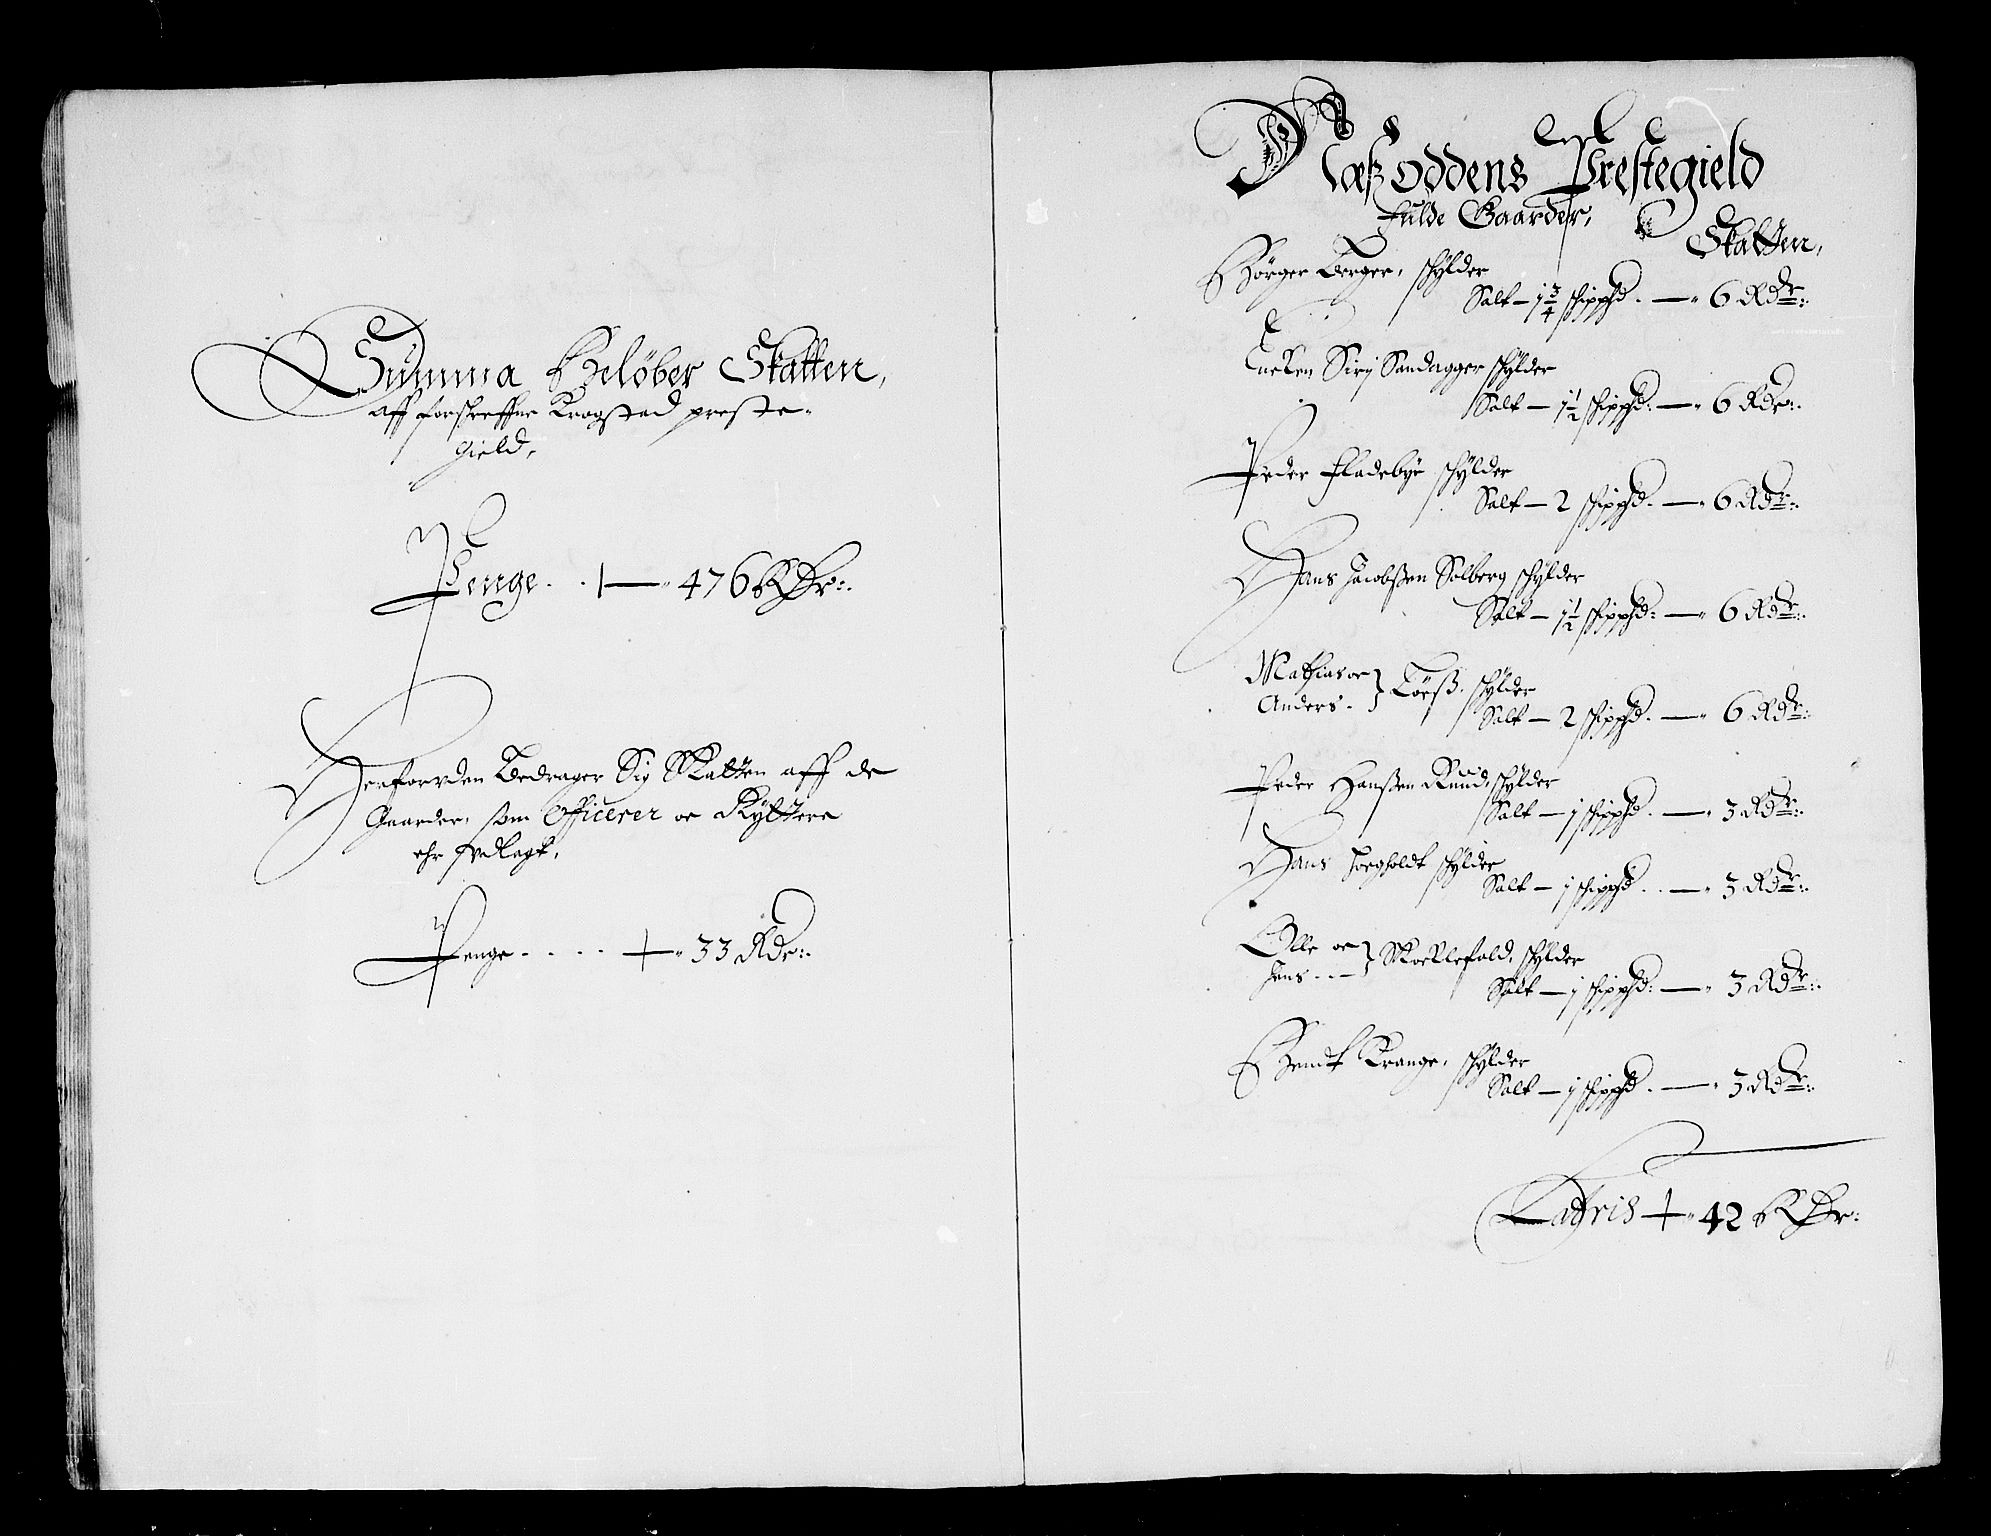 Summa Beløber Skatten,
aff forschreffne Krogstad preste-
Gield,
Penge. . — 476 RDr:.
Herforuden Bedrager Sig Skatten aff de
Gaarder, som Officerer oc Rÿttere
ehr
Penge . . . . — 33 Rdr:.
Næsoddens Prestegield
Fulde Gaarder,
Skatten,
Börger Berger, schÿlder
Salt — 1 3/4 schippd. — 6 Rdr:.
Encken Sirj Sandagger schÿlder
Salt — 1 1/2 schippd: — 6 Rdr:.
Peder Fladebye schÿlder
Salt — 2 schippd. — 6 Rdr:.
Hans Jacobßen Solberg schÿlder
Salt — 1 1/2 schippd: — 6 Rdr:.
Mathias oc
Anders . } Toeß. schÿlder
Salt — 2 schippd. — 6 Rdr:.
Peder Hanßen Ruud, schÿlder
Salt — 1 schippd. — 3 Rdr:.
Hans Toegholdt schÿlder
Salt — 1 schippd. . — 3 Rdr:.
Olle oc
Jens . . — } Skocklefald, schÿlder
Salt — 1 schippd: — 3 Rdr:.
Bendt Krange, schÿlder
Salt — 1 schippd. — 3 Rdr:.
Latris — 42 RDr: